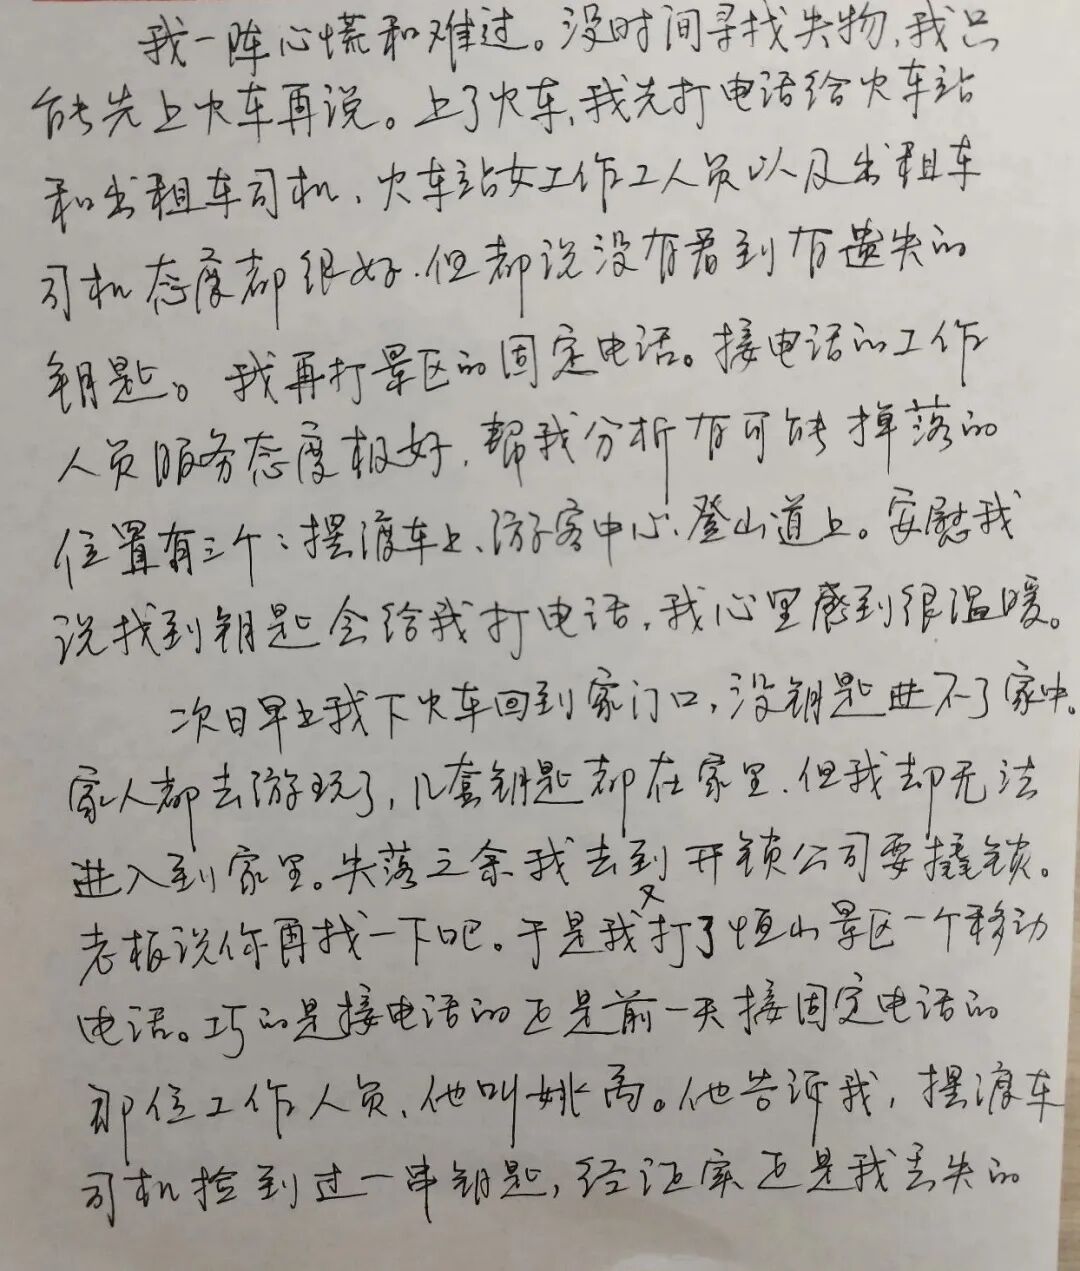 我一阵心慌和难过。没时间寻找失物，我只
能先上火车再说。上了火车，我先打电话给火车站
和出租车司机，火车站女工作工人员以及出租车
司机态度都很好，但都说没有看到有遗失的
钥匙。我再打景区的固定电话。接电话的工作
人员服务态度极好，帮我分析有可能掉落的
位置有三个：摆渡车上、游客中心、登山道上。安慰我
说找到钥匙会给我打电话，我心里感到很温暖。
次日早上我下火车回到家门口，没钥匙进不了家中。
家人都去游玩了，几套钥匙都在家里，但我却无法
进入到家里。失落之余我去到开锁公司要撬锁。
老板说你再找一下吧。于是我又打了恒山景区一个移动
电话。巧的是接电话的还是前一天接固定电话的
那位工作人员，他叫姚。他告诉我，摆渡车
司机捡到过一串钥匙，经证实还是我丢失的